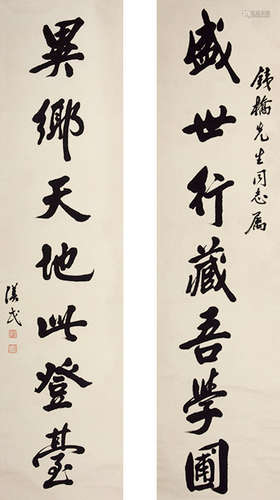 錢橋先生同志屬
盛世行藏吾學圃
異鄉天地此登臺
漢民